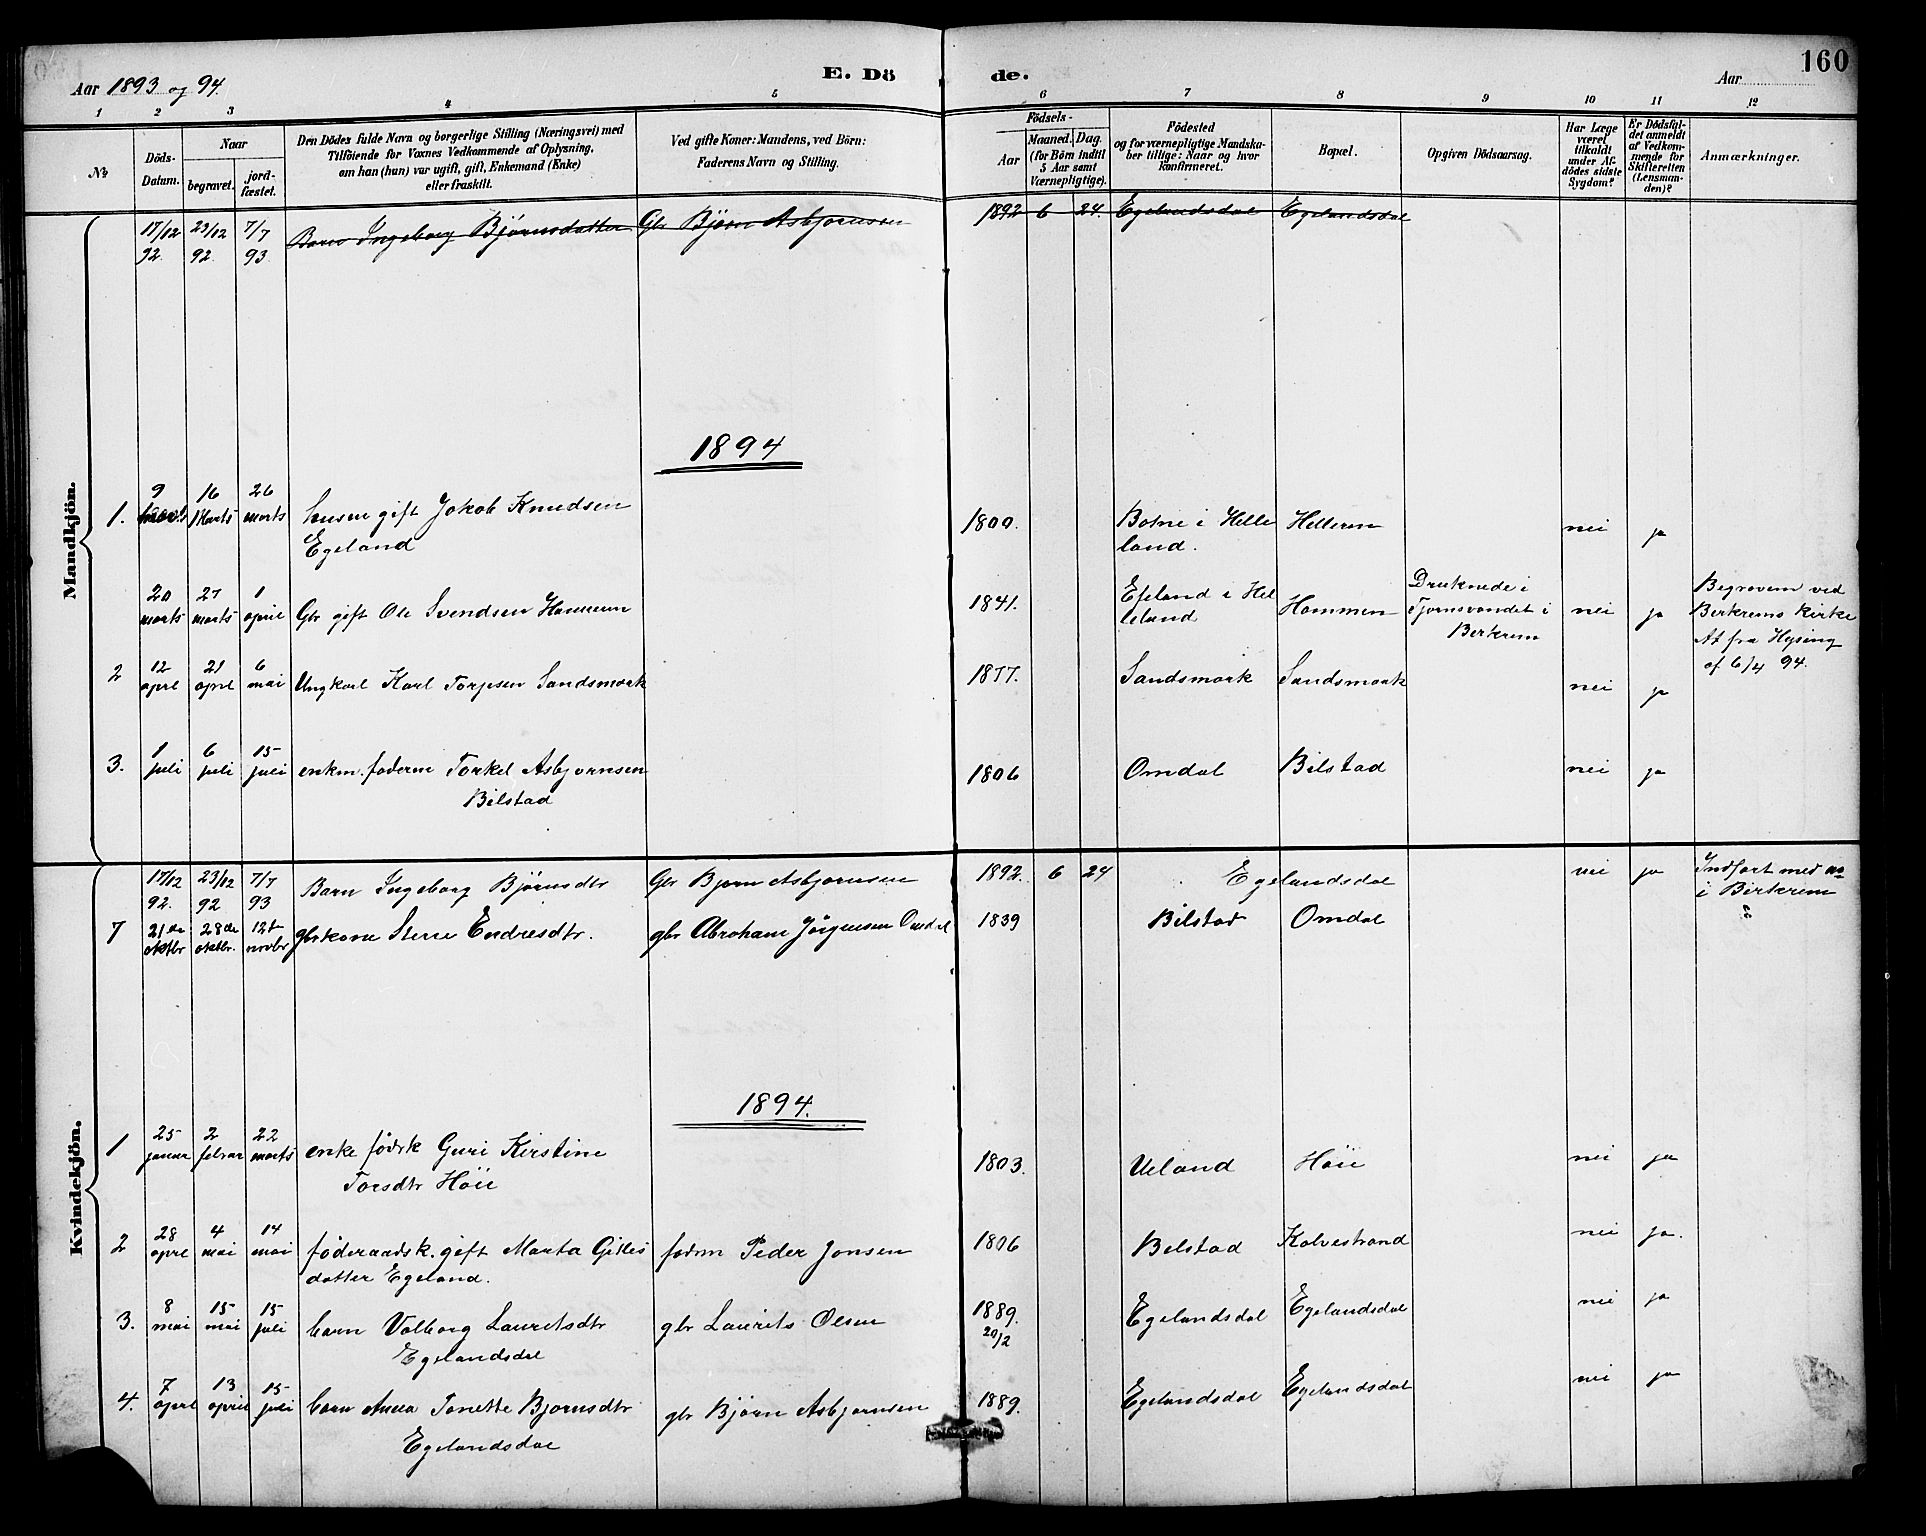 160
Aar 1893 og 94.
E. Dö
de.
Aar
1 2 3 4 5 6 7 8 9 10 11 12
№
Döds-
Datum.
Naar
begravet.
jord-
fæstet.
Den Dödes fulde Navn og borgerlige Stilling (Næringsvei) med
Tilföiende for Voxnes Vedkommende af Oplysning,
om han (hun) var ugift, gift, Enkemand (Enke)
eller fraskilt.
Ved gifte Koner: Mandens, ved Börn:
Faderens Navn og Stilling.
Födsels-
Aar
Maaned. Dag.
(for Börn indtil
5 Aar samt
Værnepligtige).
Födested
og for værnepligtige Mandska-
ber tillige: Naar og hvor
konfirmeret.
Bopæl.
Opgiven Dödsaarsag.
Har Læge
været
tilkaldt
under Af-
dödes sidste
Sygdom?
Er Dödsfal-
det anmeldt
af Vedkom-
mende for
Skifteretten
(Lensman-
den)?
Anmærkninger.
Mandkjön.
17/12 23/12 7/7 Barn Ingeborg Björnsdatter Gbr Björn Asbjornsen 1892 6 24. Egelandsdal Egelandsdal
92. 92. 93.
1894
9 16 26
1. marts Marts marts husm gift Jakob Knudsen 1800. Botne i Helle Helleren nei ja
Egeland land.
20 27 1 Druknede i Begraven ved
marts marts april Gbr gift Ole Svendsen Hammen 1841. Efeland i Hel Hammen Tjornsvandet i nei ja Berkrems Kirke
leland Berkrem At fra Hysing
af 6/4 94.
12 21 6
2 april april mai Ungkarl Karl Torjesen Sandsmark 1877. Sandsmark Sandsmark nei ja
1 6 15
3. juli juli juli enkm. foderm Torkel Asbjornsen 1806 Omdal Bilstad nei ja
Bilstad
Kvindekjön.
17/12 23/12 7/7 Barn Ingeborg Björnsdtr Gbr Bjorn Asbjornsen 1892. 6 24 Egelandsdal nei ja Indfort med no
92. 92 93 i Birkrem
21de 28de 12te
7 oktbr oktbr. novbr gbrkone Sterre Endresdtr. gbr Abraham Jörgensen Omdal 1839 Bilstad Omdal
1894.
25 2 22
1 januar februar marts enke födrk Guri Kirstine 1803. Ueland Höie nei ja
Torsdtr Höie
28 4 14
2 april mai mai föderaadsk. gift Marta Gilles foderm Peder Jonsen 1806 Bilstad Kalvestrand nei ja.
datter Egeland.
8 15 15
3. mai mai juli barn Valborg Lauritsdtr gbr Laurits Olsen 1889. Egelandsdal Egelandsdal nei ja
Egelandsdal 20/2
7 13 15
4. april april juli barn Anna Tonette Bjornsdtr gbr Björn Asbjornsen 1889. Egelandsdal Egelandsdal nei ja
Egelandsdal